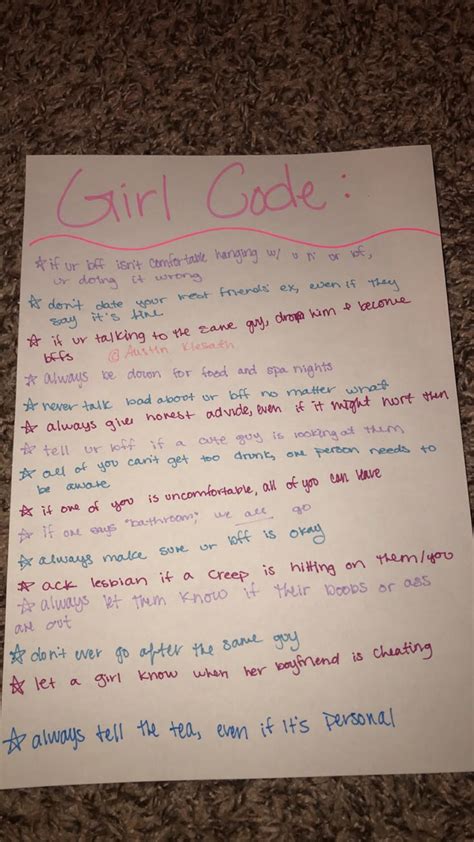 Girl Code :
☆ if ur bff isn't comfortable hanging w/ u n' ur bf,
ur doing it wrong
☆ don't date your best friends' ex, even if they
say it's fine
☆ if ur talking to the same guy, drop him & become
bffs @Austin
☆ always be down for food and spa nights
☆ never talk bad about ur bff no matter what
☆ always give honest advide, even if it might hurt them
☆ tell ur bff if a cute guy is looking at them
☆ all of you can't get too drunk, one person needs to
be aware
☆ if one of you is uncomfortable, all of you can leave
☆ if one says "bathroom", we all go
☆ always make sure ur bff is okay
☆ ack lesbian if a creep is hitting on them/you
☆ always let them know if their boobs or ass
are out
☆ don't ever go after the same guy
☆ let a girl know when her boyfriend is cheating
☆ always tell the tea, even if It's personal